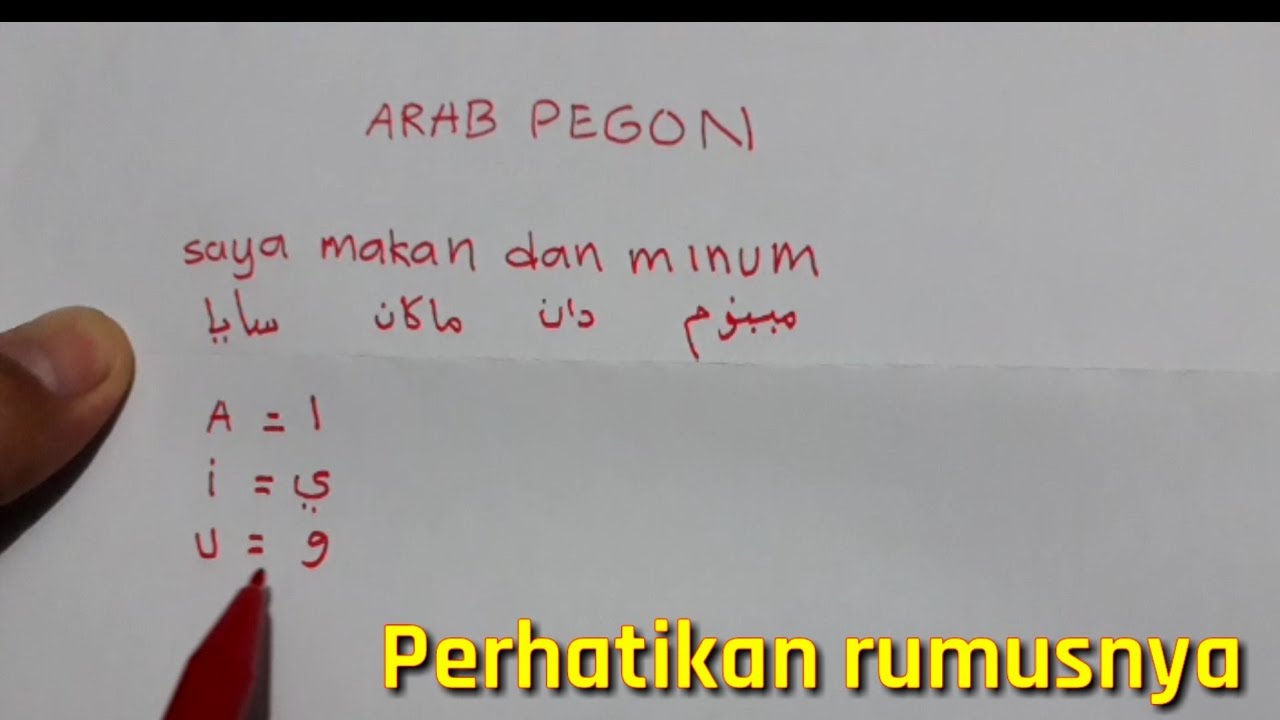 ARAB PEGON
saya makan dan minum
سايا ماكان دان مينوم
A = ا
i = ي
u = و
Perhatikan rumusnya